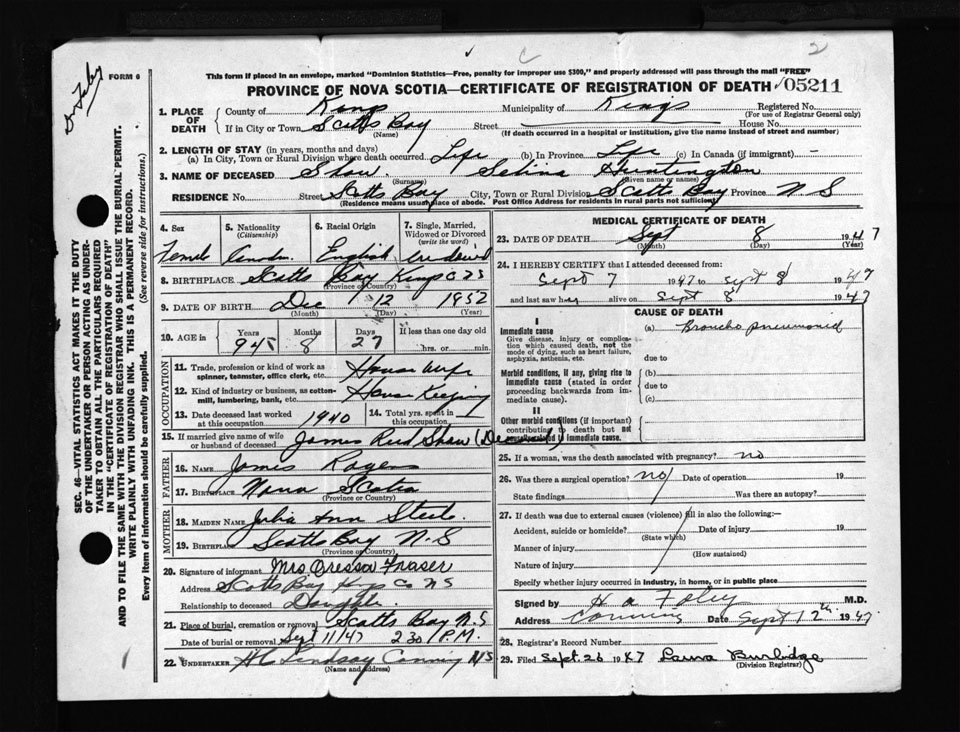 Dr Foley
FORM 6
C
2
This form if placed in an envelope, marked "Dominion Statistics—Free, penalty for improper use $300," and properly addressed will pass through the mail "FREE"
PROVINCE OF NOVA SCOTIA—CERTIFICATE OF REGISTRATION OF DEATH 05211
SEC. 46—VITAL STATISTICS ACT MAKES IT THE DUTY
OF THE UNDERTAKER OR PERSON ACTING AS UNDER-
TAKER TO OBTAIN ALL THE PARTICULARS REQUIRED
IN THE "CERTIFICATE OF REGISTRATION OF DEATH"
AND TO FILE THE SAME WITH THE DIVISION REGISTRAR WHO SHALL ISSUE THE BURIAL PERMIT.
WRITE PLAINLY WITH UNFADING INK. THIS IS A PERMANENT RECORD.
Every item of information should be carefully supplied. (See reverse side for instructions.)
1. PLACE OF DEATH
County of Kings Municipality of Kings Registered No.
(For use of Registrar General only)
If in City or Town Scotts Bay Street — House No.
(Name) (If death occurred in a hospital or institution, give the name instead of street and number)
2. LENGTH OF STAY (in years, months and days)
(a) In City, Town or Rural Division where death occurred Life (b) in Province Life (c) In Canada (if immigrant) —
3. NAME OF DECEASED Shaw Selina Huntington
(Surname) (Given name or names)
RESIDENCE No. Street Scotts Bay City, Town or Rural Division Scotts Bay Province N S
(Residence means usual place of abode. Post Office Address for residents in rural parts not sufficient.)
4. Sex 5. Nationality (Citizenship) 6. Racial Origin 7. Single, Married, Widowed or Divorced (write the word)
Female English Widowed
8. BIRTHPLACE Scotts Bay Kings Co
(Province or Country)
9. DATE OF BIRTH Dec 12 1952
(Month) (Day) (Year)
10. AGE in Years Months Days If less than one day old
94 8 27 hrs. or min.
OCCUPATION
11. Trade, profession or kind of work as spinner, teamster, office clerk, etc. House wife
12. Kind of industry or business, as cotton-mill, lumbering, bank, etc. House Keeping
13. Date deceased last worked at this occupation 1940 14. Total yrs. spent in this occupation
15. If married give name of wife or husband of deceased James Reid Shaw (Deceased)
FATHER
16. NAME James Rogers
17. BIRTHPLACE Nova Scotia
(Province or Country)
MOTHER
18. MAIDEN NAME Julia Ann
19. BIRTHPLACE Scotts Bay N.S
(Province or Country)
20. Signature of informant Mrs Oressa Fraser
Address Scotts Bay Kings Co NS
Relationship to deceased Daughter
21. Place of burial, cremation or removal Scotts Bay N.S
Date of burial or removal Sept 11/47 2 30 P.M.
22. UNDERTAKER Lindsay Canning N S
(Name and address)
MEDICAL CERTIFICATE OF DEATH
23. DATE OF DEATH Sept 8 1947
(Month) (Day) (Year)
24. I HEREBY CERTIFY that I attended deceased from:
Sept 7 1947 to Sept 8 1947
and last saw her alive on Sept 8 1947
CAUSE OF DEATH
I
Immediate cause
Give disease, injury or complication which caused death, not the mode of dying, such as heart failure, asphyxia, asthenia, etc.
(a) Broncho pneumonia
due to
Morbid conditions, if any, giving rise to immediate cause (stated in order proceeding backwards from immediate cause).
(b)
due to
(c)
II
Other morbid conditions (if important) contributing to death but not causally related to immediate cause.
25. If a woman, was the death associated with pregnancy? no
26. Was there a surgical operation? no Date of operation 19
State findings Was there an autopsy?
27. If death was due to external causes (violence) fill in also the following:—
Accident, suicide or homicide? Date of injury 19
(State which)
Manner of injury
(How sustained)
Nature of injury
Specify whether injury occurred in industry, in home, or in public place
Signed by H a Foley M.D.
Address Canning Date Sept 12th 1947
28. Registrar's Record Number
29. Filed Sept. 26 1947 Laura Burbidge
(Division Registrar)